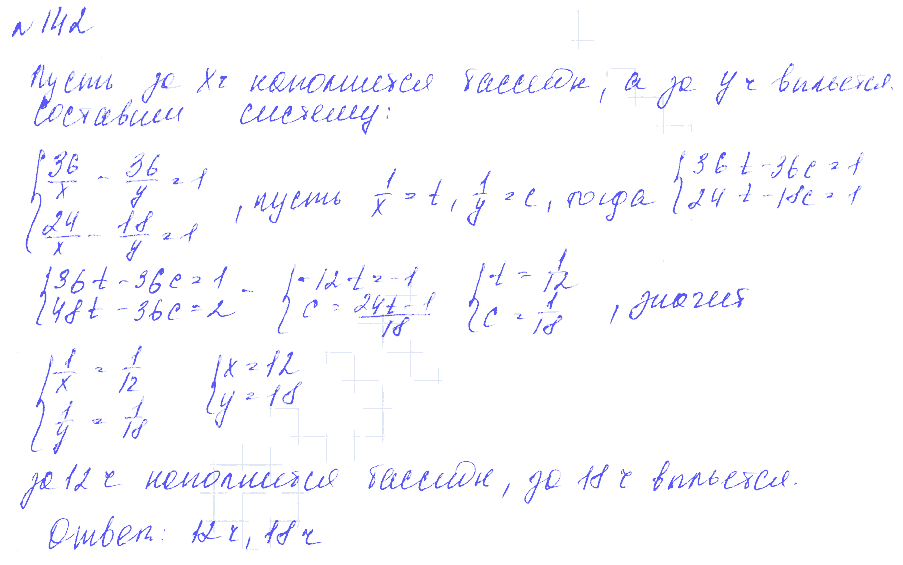 № 142
Пусть за x ч наполнится бассейн, а за y ч выльется.
Составим систему:
{36/x - 36/y = 1, 24/x - 18/y = 1 , пусть 1/x = t, 1/y = c, тогда {36t - 36c = 1, 24t - 18c = 1
{36t - 36c = 1, 48t - 36c = 2 - {-12t = -1, c = (24t - 1)/18 {t = 1/12, c = 1/18 , значит
{1/x = 1/12, 1/y = 1/18 {x = 12, y = 18
за 12 ч наполнится бассейн, за 18 ч выльется.
Ответ: 12 ч, 18 ч